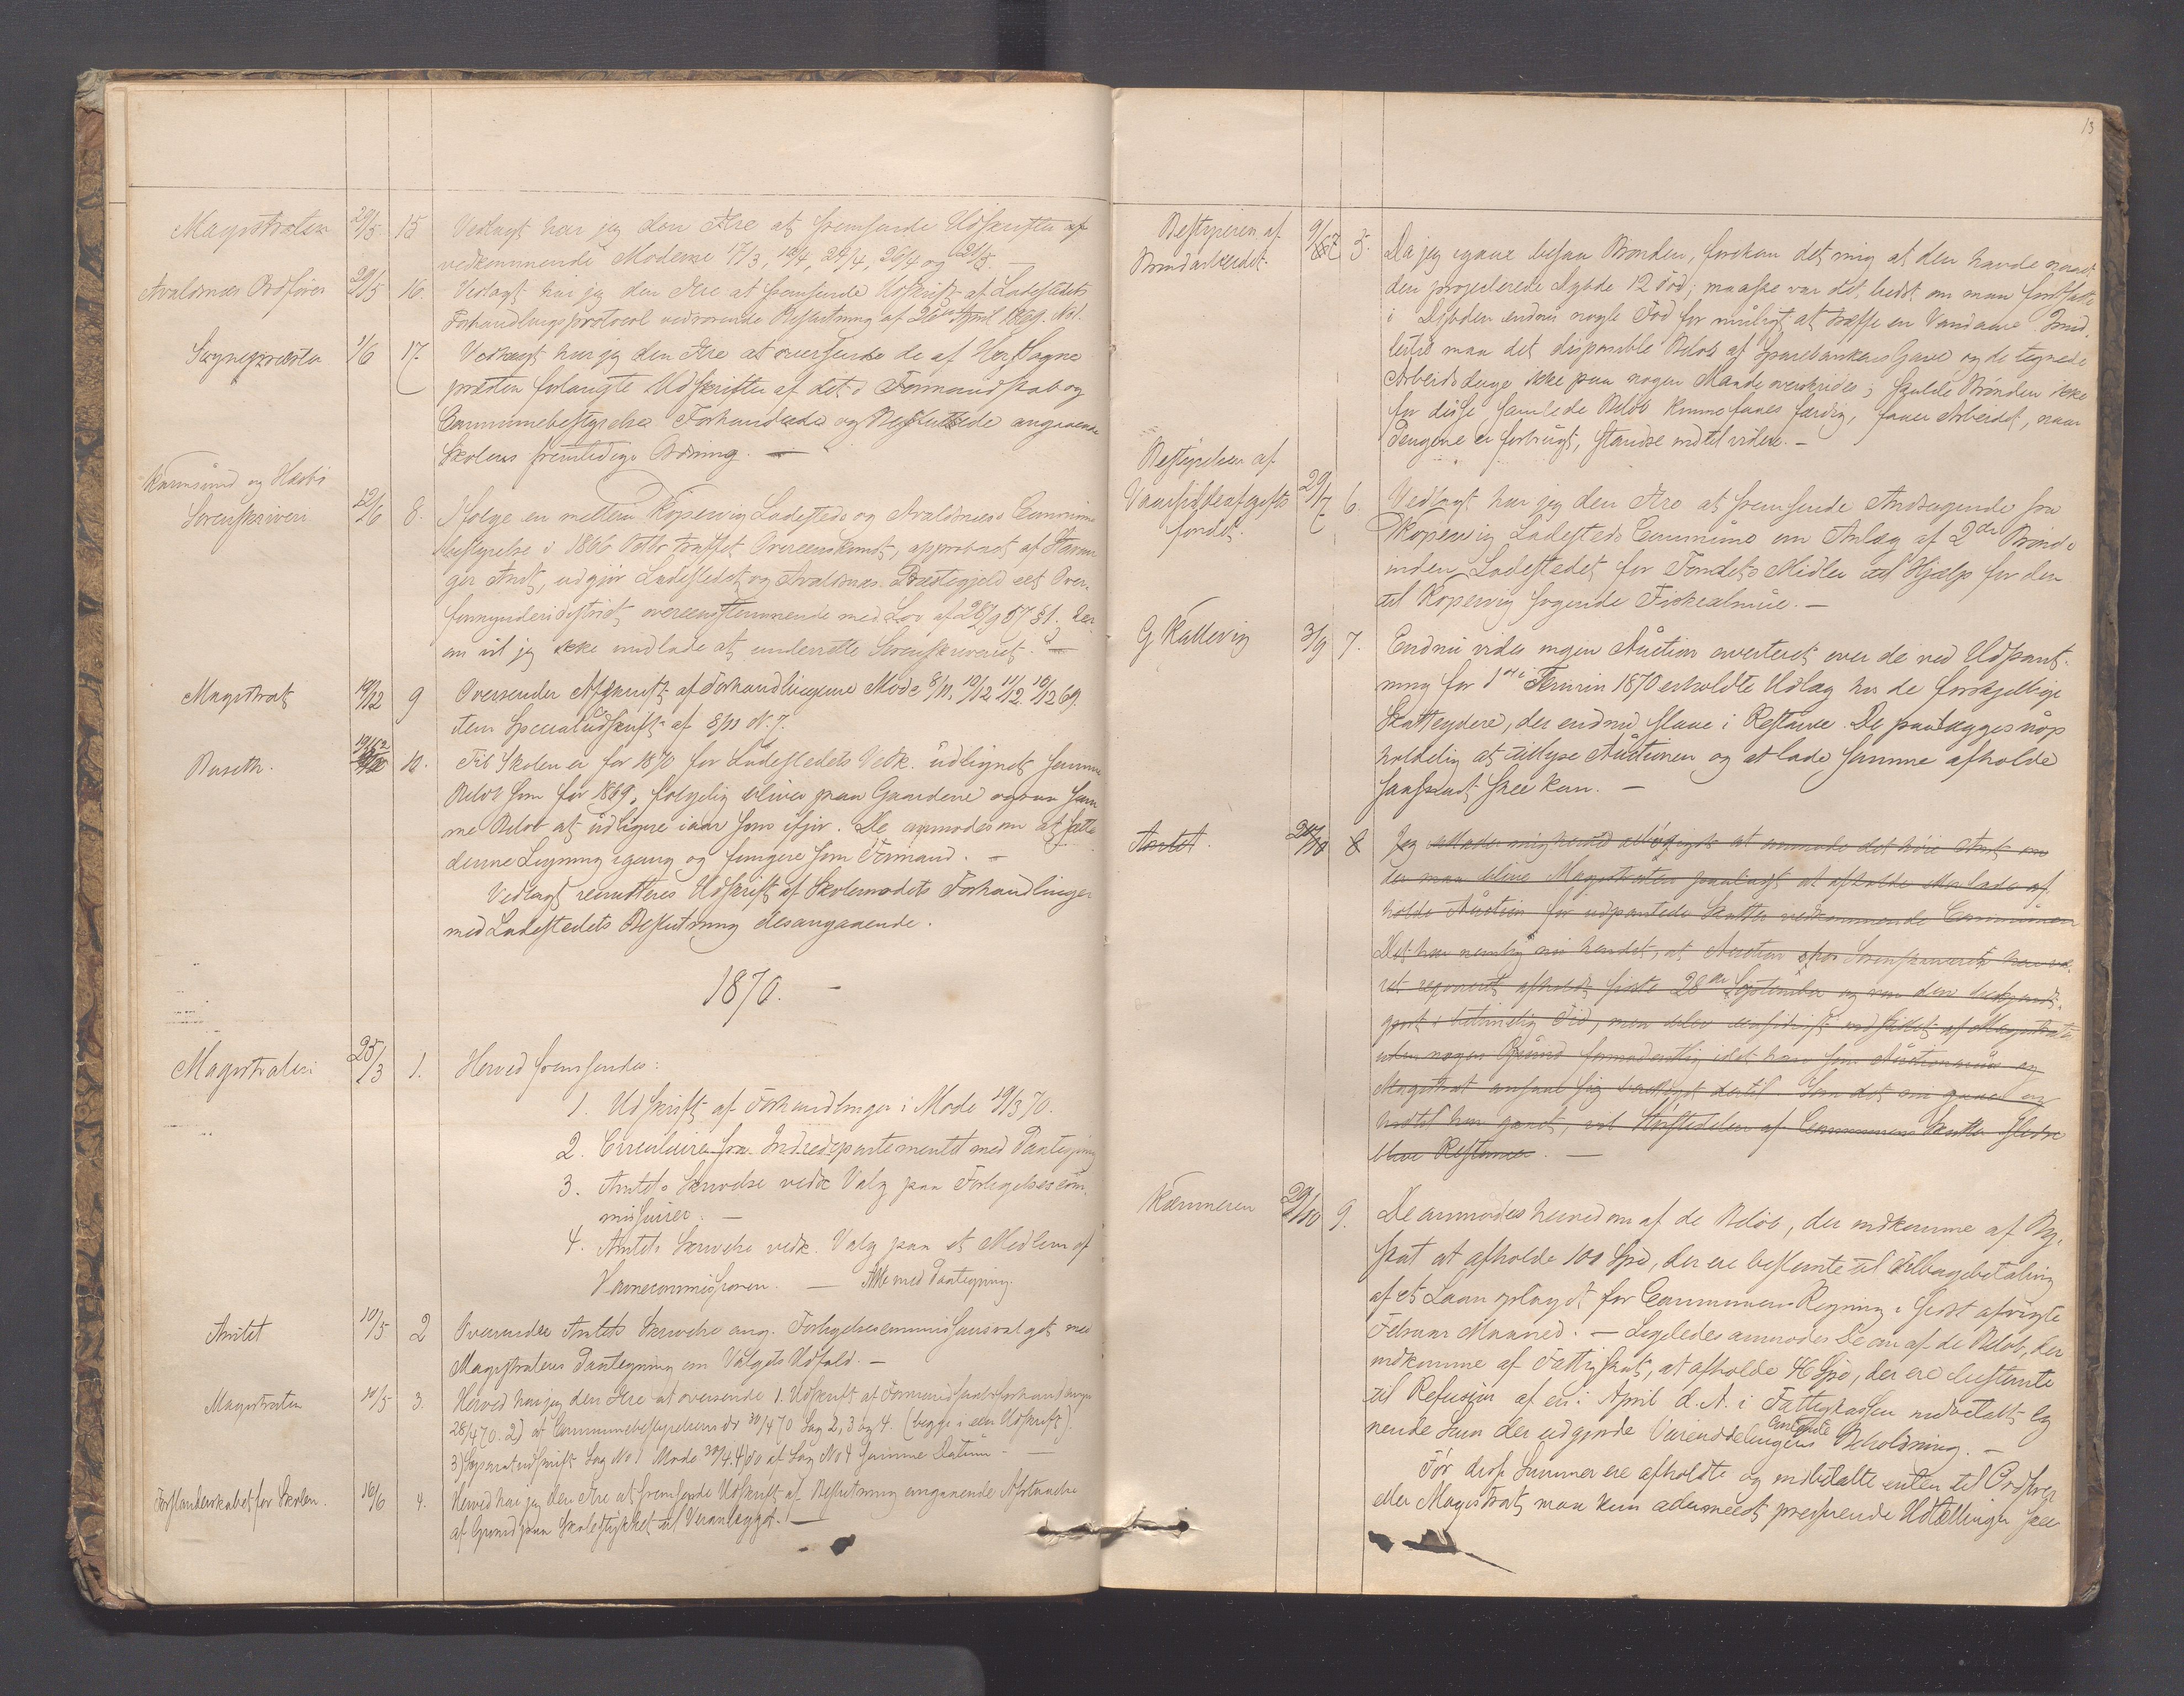 Magistraten 29/5 15 Vedlagt har jeg den Ære at fremsende Udskrifter af
vedkommende Møderne 17/3, 12/4, 24/4, 26/4 og 21/5. —
Avaldsnæs Ordfører 29/5 16. Vedlagt har jeg den Ære at fremsende Udskrift af Ladestedets
Forhandlingsprotocol vedrørende Beslutning af 26de April 1869. No 1.
Sognepræsten 1/6 17. Vedlagt har jeg den Ære at oversende de af Hr. Sogne
præsten forlangte Udskrifter af det i Formandskab og
Communebestyrelse Forhandlede og Besluttede angaaende
Skolens fremtidige Ordning. —
Karmsund og Hesbi
Sorenskriveri 12/6 8. Ifølge en mellem Kopervig Ladesteds og Avaldsnæs Commune
bestyrelse i 1866 Octbr truffet Overeenskomst, approberet af Stavan
ger Amt, udgjør Ladestedet og Avaldsnæs Præstegjeld eet Over-
formynderidistrict overeensstemmende med Lov af 28/9 57 § 1. Der
om vil jeg ikke undlade at underrette Sorenskriveriet. —
Magistrat 19/12 9 Oversender Afskrift af Forhandlingerne Møde 8/11, 10/12 11/12. 16/12 69.
item Specialudskrift af 8/11 N. 7.
10. Til Skolen er for 1870 for Ladestedets Vedk. udlignet samme
Beløb som for 1869, følgelig bliver paa Gaardene ogsaa sam
me Beløb at udligne iaar som ifjor. De anmodes om at sætte
denne Ligning igang og fungere som Formand. —
Vedlagt remitteres Udskrift af Skolemødets Forhandlinger
med Ladestedets Beslutning desangaaende.
1870. —
Magistraten 25/3 1. Herved fremsendes:
1. Udskrift af Forhandlinger i Møde 19/3 70.
2. Circulaire fra Indredepartementet med Paategning
3. Amtets Skrivelse vedk Valg paa Forlegelsescom-
missairer. —
4. Amtets Skrivelse vedk. Valg paa et Medlem af
Havnecommissionen. — Alle med Paategning.
Amtet 10/5 2 Oversender Amtets Skrivelse ang. Forlegelsescommissairsvalget med
Magistratens Paategning om Valgets Udfald. —
Magistraten 10/5 3. Herved har jeg den Ære at oversende 1. Udskrift af Formandskabsforhandlinger
28/4 70. 2) at Communebestyrelsens do 30/4 70 Sag 2, 3 og 4. (begge i een Udskrift).
3) Separatudskrift Sag No 1 Møde 30/4. 4) do af Sag No 4 samme Datum. —
Forstanderskabet for Skolen. 16/6 4. Herved har jeg den Ære at fremsende Udskrift af Beslutning angaaende Afstaaelse
af Grund paa Skolestykket til Veranlægget. —
13
Bestyreren af
Brøndarbeidet. 9/7 5. Da jeg igaar besaa Brønden, forekom det mig at den havde naaet
den projecterede Dybde 12 Fod; maaske var det bedst om man fortsatte
i Dybden endnu nogle Fod for muligt at træffe en Vandaare. Imid
lertid maa det disponible Beløb af Sparebankens Gave og de tegnede
Arbeidsdage ikke paa nogen Maade overskrides; skulde Brønden ikke
for disse samlede Beløb kunne faaes færdig, faaer Arbeidet, naar
Pengene er forbrugt, standse indtil videre. —
Bestyrelsen af
Vaarsildsafgifts
fondet. 29/7 6. Vedlagt har jeg den Ære at fremsende Andragende fra
Kopervig Ladesteds Commune om Anlæg af 2de Brønde
inden Ladestedet for Fondets Midler til Hjælp for den
til Kopervig søgende Fiskealmue. —
G Kallevig 3/9 7. Endnu vides ingen Auction averteret over de ved Udpant-
ning for 1ste Termin 1870 erholdte Udlæg hos de forskjellige
Skatteydere, der endnu staae i Restance. De paalægges uop
holdelig at udlyse Auctionen og at lade samme afholde
saasnart skee kan. —
Amtet. 8 Jeg tillader mig herved at anmode det høie Amt om
der maa blive Magistraten paalagt at afholde eller lade af
holde Auction for udpantede Skatter vedkommende Communen
Det har nemlig nu hendet, at Auction hos Sorenskriveren har væ
ret afholdt sidste 28de September og var den bekjendt-
gjort i betimelig Tid, men blev indstillet af Magistraten
uden nogen Grund formodentlig idet han som Auctionarius og
Magistrat ansaae sig berettiget dertil. Som det nu gaaer og
hidtil har gaaet, vil Størstedelen af Communens Skatter
blive Restancer. —
Kæmneren 29/10 9. De anmodes herved om af de Beløb, der indkomme af By-
skat at afholde 100 Spd, der ere bestemte til Tilbagebetaling
af et Laan optaget for Communens Regning i sidst afvigte
Februar Maaned. — Ligeledes anmodes De om af de Beløb, der
indkomme af Fattigskat, at afholde 46 Spd, der ere bestemte
til Refusion af en i April d. A. i Fattigkassen indbetalt lig
nende Sum der udgjorde Vareuddelingens contante Beholdning. —
Før disse Summer ere afholdte og indbetalte enten til Ordfører
eller Magistrat, maa kun presserende Udtællinger skee